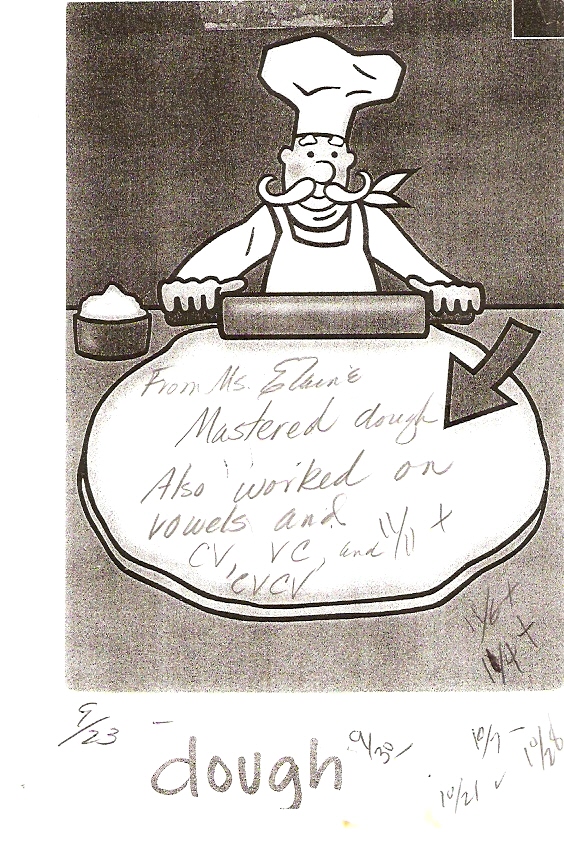 From Ms. Elaine
Mastered dough
Also worked on
vowels and
CV, VC, and 11/11 +
CVCV
11/6 +
11/4 +
9/23 –
dough
9/30 –
10/7 –
10/28
10/21 ✓